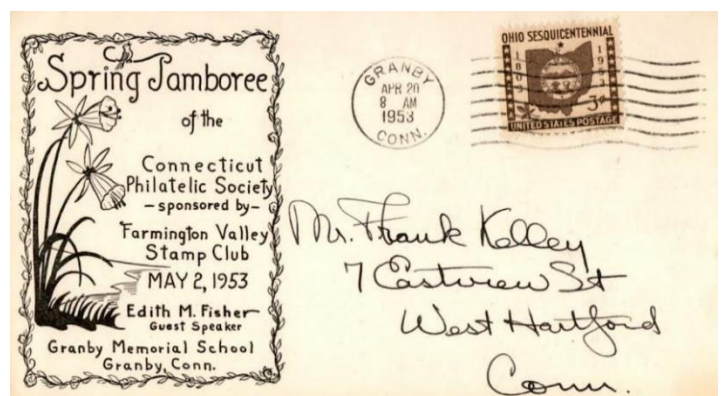 Spring Jamboree
of the
Connecticut
Philatelic Society
- sponsored by -
Farmington Valley
Stamp Club
MAY 2, 1953
Edith M. Fisher
Guest Speaker
Granby Memorial School
Granby, Conn.
GRANBY
APR 20
8 AM
1953
CONN.
OHIO SESQUICENTENNIAL
1803 1953
3¢
UNITED STATES POSTAGE
Mr. Frank Kelley
7 Eastview St
West Hartford
Conn.